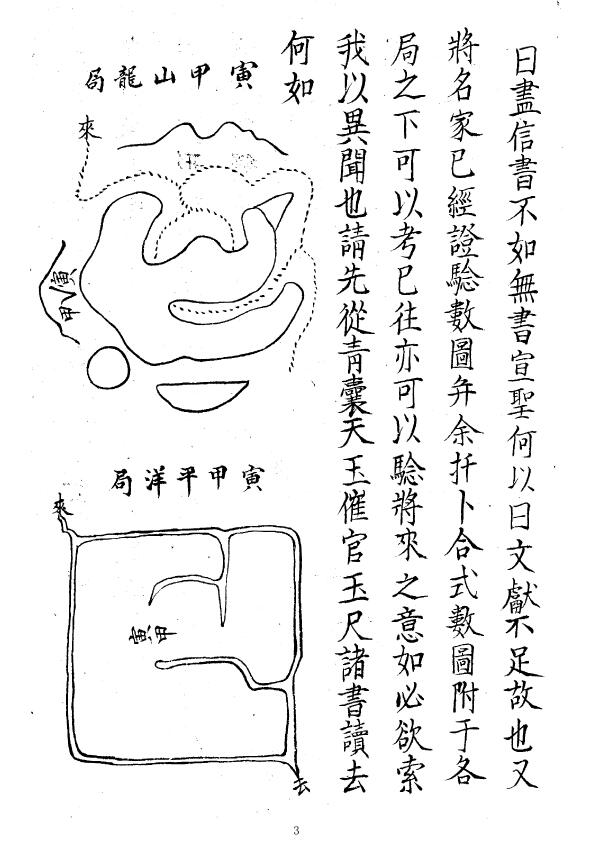 曰盡信書不如無書宣聖何以曰文獻不足故也又
將名家已經證驗數圖弁余扦卜合式數圖附于各
局之下可以考已往亦可以驗將來之意如必欲索
我以異聞也請先從青囊天玉催官玉尺諸書讀去
何如
寅甲山龍局
來
寅
甲
寅甲平洋局
來
寅甲
去
3